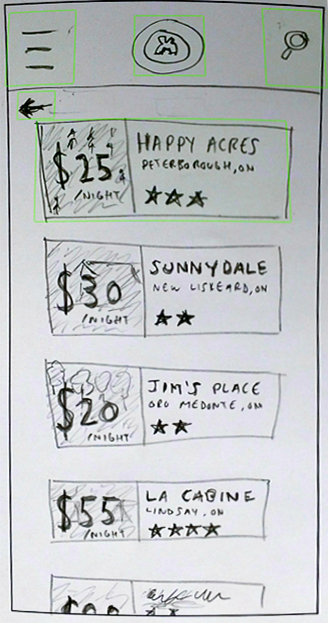 $25
/NIGHT
HAPPY ACRES
PETERBOROUGH, ON
$30
/NIGHT
SUNNYDALE
NEW LISKEARD, ON
$20
/NIGHT
JIM'S PLACE
ORO MEDONTE, ON
$55
/NIGHT
LA CABINE
LINDSAY, ON